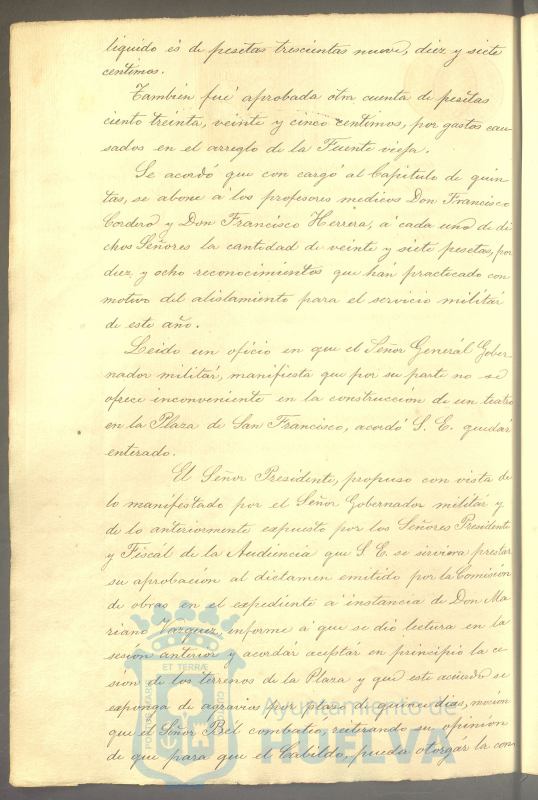 liquido es de pesetas trescientas nueve, diez y siete
centimos.
También fué aprobada otra cuenta de pesetas
ciento treinta, veinte y cinco centimos, por gastos cau-
sados en el arreglo de la Fuente vieja.
Se acordó que con cargó al Capitulo de quin-
tas, se abone á los profesores medicos Don Francisco
Cordero y Don Francisco Herrera, á cada uno de di-
chos Señores la cantidad de veinte y siete pesetas, por
diez y ocho reconocimientos que hán practicado con
motivo del alistamiento para el servicio militár
de este año.
Leido un oficio en que el Señor Generál Gober-
nador militár, manifiesta que por su parte no se
ofrece inconveniente en la construccion de un teatro
en la Plaza de San Francisco, acordó S. E. quedár
enterado.
El Señor Presidente, propuso con vista de
lo manifestado por el Señor Gobernador militár y
de lo anteriormente expuesto por los Señores Presidente
y Fiscal de la Audiencia que S. E. se sirviera prestar
su aprobacion al dictamen emitido por la Comision
de obras en el expediente á instancia de Don Ma-
riano Vazquez, informe á que se dió lectura en la
sesión anterior y acordar aceptár en principio la ce-
sion de los terrenos de la Plaza y que este acuerdo se
exponga de agravios por plazo de quince dias, moción
que el Señor Bél combatió, reiterando su opinion
de que para que el Cabildo, pueda otorgár la con-
PORTUS MARIS
ET TERRÆ
CUSTODIA
Ayuntamiento de
HUELVA